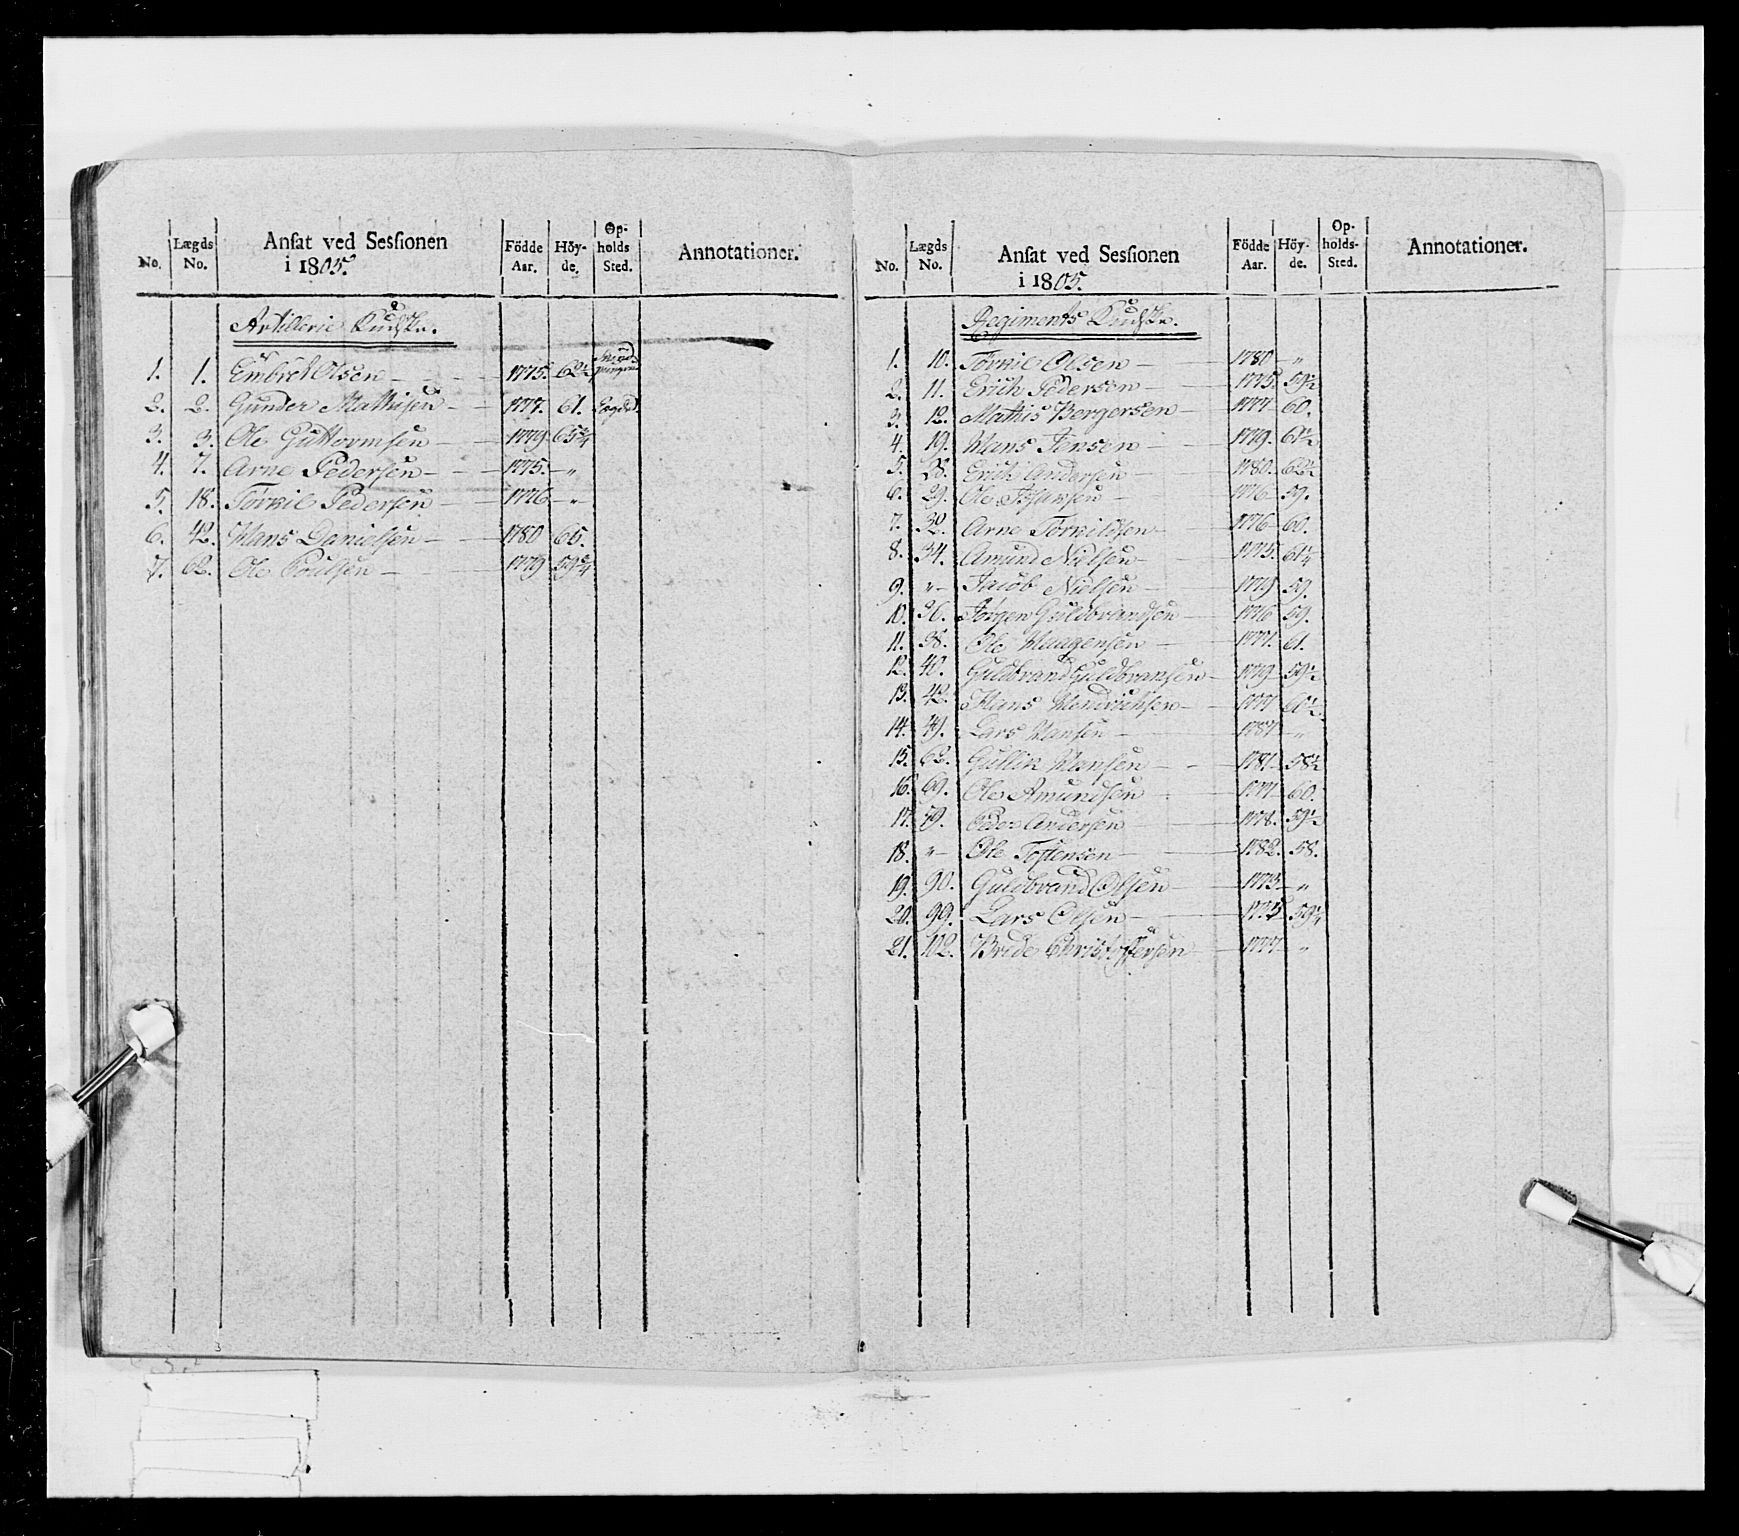 No. Lægds No. Anſat ved Seſſionen i 1805. Födde Aar. Höy- de. Op- holds Sted. Annotationer.
Artillerie Kudske.
1. 1. Embret Olsen — 1775. 62½
2. 2. Gunder Mathisen — 1777. 61.
3. 3. Ole Guttormsen — 1779. 65¾
4. 7. Arne Pedersen — 1775. — „
5. 18. Torkil Pedersen — 1776 — „
6. 42. Hans Danielsen — 1780 65.
7. 62. Ole Poulsen — 1779 59¾
No. Lægds No. Anſat ved Seſſionen i 1805. Födde Aar. Höy- de. Op- holds- Sted. Annotationer.
Regiments Kudske.
1. 10. Torkil Olsen — 1780 — „
2. 11. Erich Pedersen — 1775. 59½
3. 12. Mathis Bergersen — 1777 60.
4. 19. Hans Jensen — 1779. 61½
5. 28. Erich Andersen — 1780. 62½
6. 29. Ole — 1776 59.
7. 32. Arne Torkildsen — 1776 60.
8. 34. Amund Nielsen — 1775. 61¼
9. „ Jacob Nielsen — 1779 59.
10. 36. Jørgen Guldbrandsen — 1776 59.
11. 38. Ole Haagensen — 1777. 61.
12. 40. Guldbrand Guldbransen — 1779 59½
13. 42. Hans Hendrichsen — 1777 60½
14. 49. Lars Hansen — 1781 — „
15. 62. Gullik Hansen — 1781 58½
16. 69. Ole Amundsen — 1777 60.
17. 79. Peder Andersen — 1778. 59½
18. „ Ole Tostensen — 1782. 58.
19. 90. Guldbrand Olsen — 1773 — „
20. 99. Lars Olsen — 59¼
21. 102. Brede Christoffersen — 1777 „